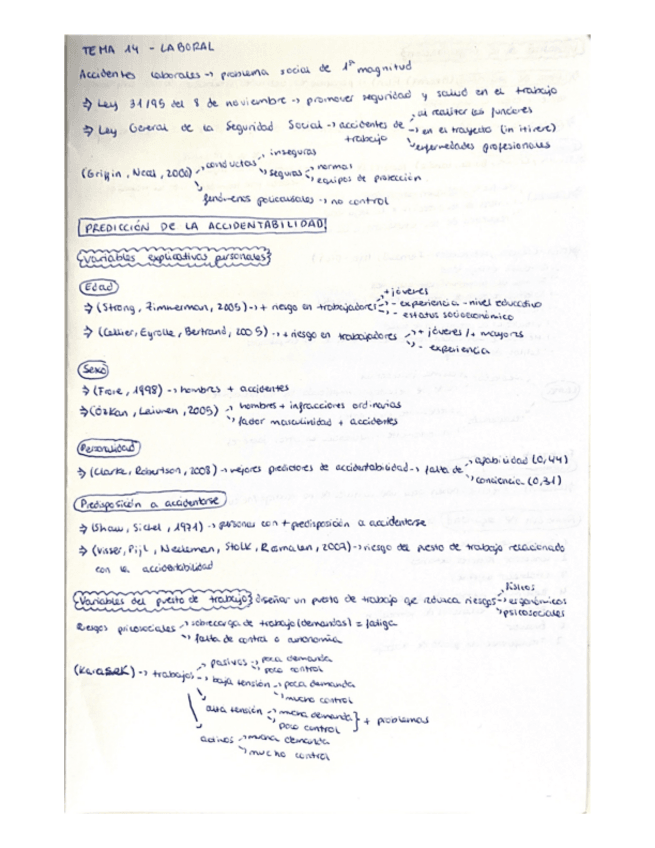 TEMA 14 - LABORAL
Accidentes laborales → problema social de 1ª magnitud
⇒ Ley 31/95 del 8 de noviembre → promover seguridad y salud en el trabajo
⇒ Ley General de la Seguridad Social → accidentes de trabajo → al realizar las funciones
→ en el trayecto (in itinere)
→ enfermedades profesionales
(Griffin, Neal, 2000) → conductas → inseguras
→ seguras → normas
→ equipos de protección
→ fenómenos policausales → no control
PREDICCIÓN DE LA ACCIDENTABILIDAD
Variables explicativas personales
Edad
⇒ (Strong, Zimmerman, 2005) → + riesgo en trabajadores → + jóvenes
→ - experiencia - nivel educativo
→ - estatus socioeconómico
⇒ (Cellier, Eyrolle, Bertrand, 2005) → + riesgo en trabajadores → + jóvenes / + mayores
→ - experiencia
Sexo
⇒ (Frore, 1998) → hombres + accidentes
⇒ (Özkan, Lajunen, 2005) → hombres + infracciones ordinarias
→ factor masculinidad + accidentes
Personalidad
⇒ (Clarke, Robertson, 2008) → mejores predictores de accidentabilidad → falta de → afabilidad (0,44)
→ conciencia (0,31)
Predisposición a accidentarse
⇒ (Shaw, Sichel, 1971) → personas con + predisposición a accidentarse
⇒ (Visser, Pijl, Neeleman, Stolk, Rosmalen, 2007) → riesgo del puesto de trabajo relacionado
con la accidentabilidad
Variables del puesto de trabajo diseñar un puesto de trabajo que reduzca riesgos → físicos
→ ergonómicos
→ psicosociales
Riesgos psicosociales → sobrecarga de trabajo (demandas) = fatiga
→ falta de control o autonomía
(Karasek) → trabajos → pasivos → poca demanda
→ poco control
→ baja tensión → poca demanda
→ mucho control
→ alta tensión → mucha demanda
→ poco control } + problemas
activos → mucha demanda
→ mucho control